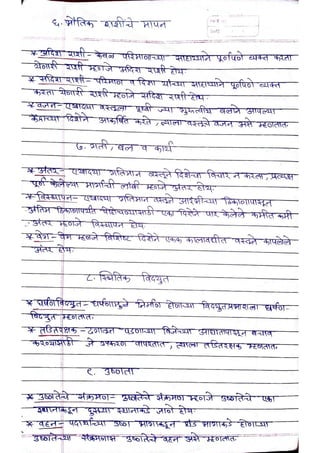 ६. भौतिक राशींचे मापन
* अदिश राशी - केवळ परिमाणाच्या साहाय्याने पूर्णपणे व्यक्त करता
येणारी राशी म्हणजे अदिश राशी होय.
* सदिश राशी - परिमाण व दिशा यांच्या साहाय्याने पूर्णपणे व्यक्त
करता येणारी राशी म्हणजे सदिश राशी होय.
* वजन - एखाद्या वस्तूला पृथ्वी ज्या गुरुत्वीय बलाने आपल्या
केंद्राच्या दिशेने आकर्षित करते, त्याला वस्तूचे वजन असे म्हणतात.
७. गती, बल व कार्य
* अंतर - एखाद्या गतिमान वस्तूने दिशेचा विचार न करता, प्रत्यक्ष
पूर्ण केलेल्या मार्गाची लांबी म्हणजे अंतर होय.
* विस्थापन - एखाद्या गतिमान वस्तूने आरंभीच्या ठिकाणापासून
अंतिम ठिकाणापर्यंत पोहोचण्यासाठी एका दिशेने पार केलेले कमीत कमी
अंतर म्हणजे विस्थापन होय.
* वेग - वेग म्हणजे विशिष्ट दिशेने एकक कालावधीत वस्तूने कापलेले
अंतर होय.
८. स्थितिक विद्युत
* घर्षणविद्युत - घर्षणामुळे निर्माण होणाऱ्या विद्युतप्रभाराला घर्षण-
विद्युत म्हणतात.
* तडितरक्षक - ढगातून पडणाऱ्या विजेच्या आघातापासून बचाव
करण्यासाठी जे उपकरण वापरतात, त्याला तडितरक्षक म्हणतात.
९. उष्णता
* उष्णतेचे संक्रमण - उष्णतेचे संक्रमण म्हणजे उष्णतेचे एका
स्थानाकडून दुसऱ्या स्थानाकडे जाणे होय.
* वहन - पदार्थाच्या उष्ण भागाकडून थंड भागाकडे होणाऱ्या
उष्णतेच्या संक्रमणास उष्णतेचे वहन असे म्हणतात.